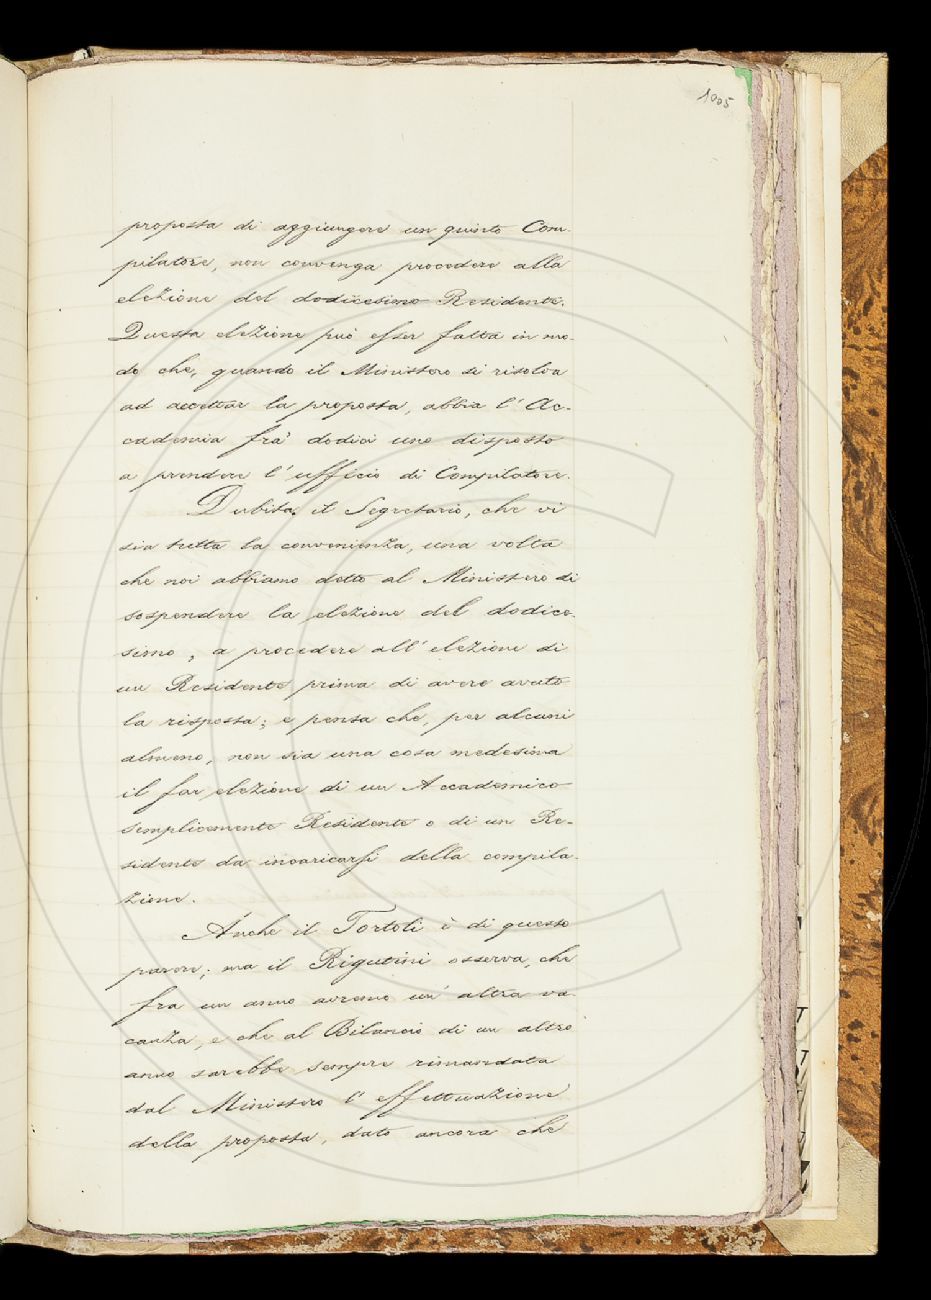 1005
proposta di aggiungere un quinto Com-
pilatore, non convenga procedere alla
elezione del dodicesimo Residente.
Questa elezione può esser fatta in mo-
do che, quando il Ministero si risolva
ad accettar la proposta, abbia l'Ac-
cademia fra' dodici uno disposto
a prendere l'ufficio di Compilatore.
Dubita il Segretario, che vi
sia tutta la convenienza, una volta
che noi abbiamo detto al Ministero di
sospendere la elezione del dodice-
simo, a procedere all'elezione di
un Residente prima di avere avuto
la risposta; e pensa che, per alcuni
almeno, non sia una cosa medesima
il far elezione di un Accademico
semplicemente Residente e di un Re-
sidente da incaricarsi della compila-
zione.
Anche il Tortoli è di questo
parere; ma il Rigutini osserva, che
fra un anno avremo un'altra va-
canza, e che al Bilancio di un altro
anno sarebbe sempre rimandata
dal Ministero l'effettuazione
della proposta, dato ancora che